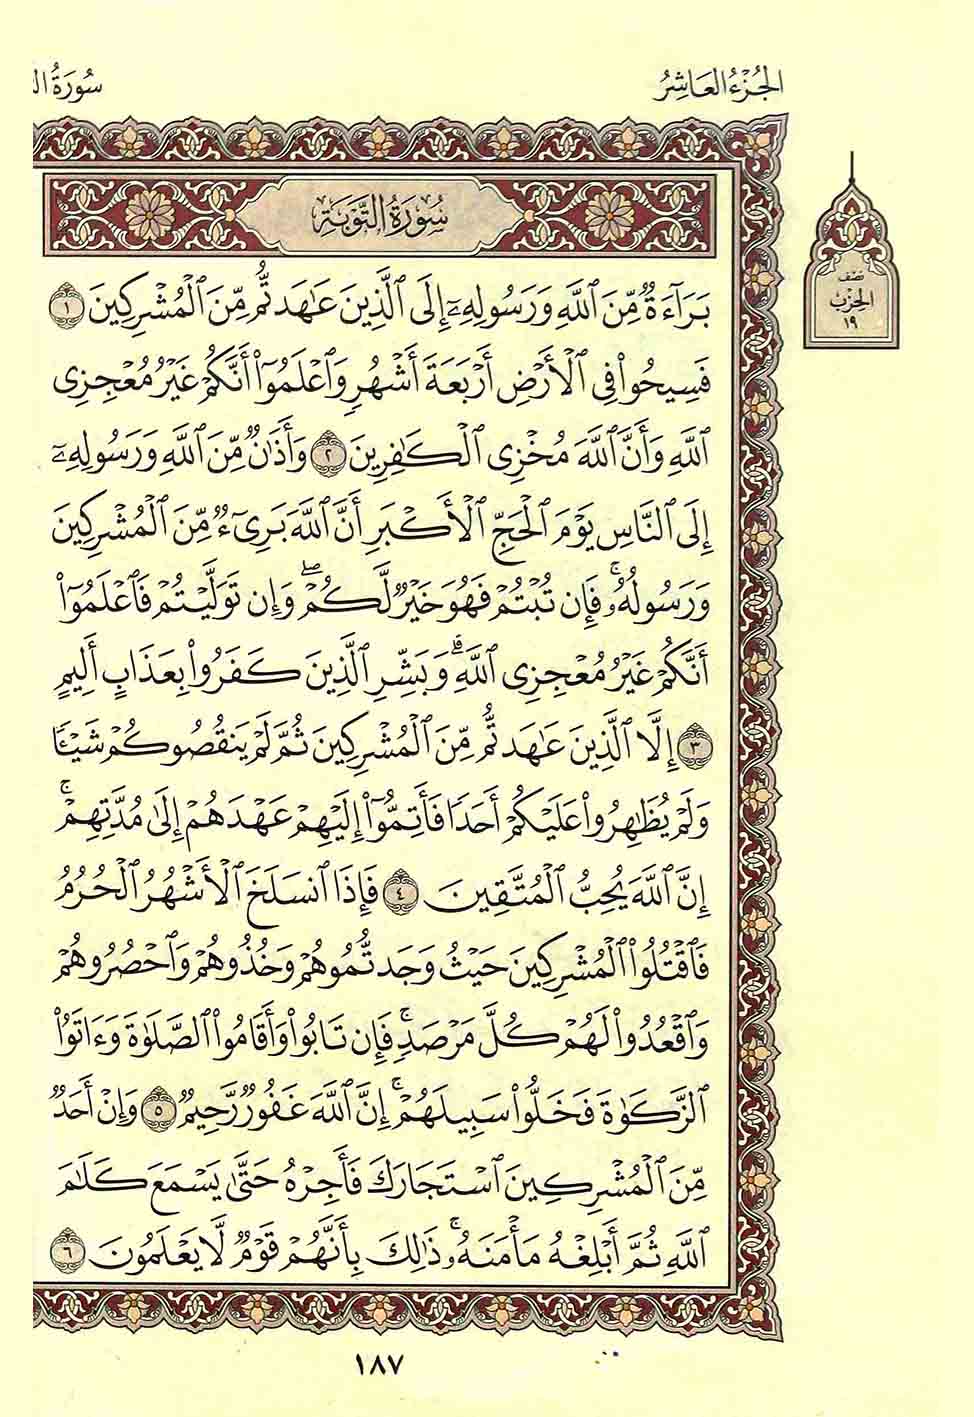 الجُزْءُ العَاشِرُ
سُورَةُ
سُورَةُ التَّوْبَةِ
نِصْف
الحِزْب
١٩
بَرَآءَةٌ مِّنَ ٱللَّهِ وَرَسُولِهِۦٓ إِلَى ٱلَّذِينَ عَٰهَدتُّم مِّنَ ٱلْمُشْرِكِينَ ١
فَسِيحُوا۟ فِى ٱلْأَرْضِ أَرْبَعَةَ أَشْهُرٍ وَٱعْلَمُوٓا۟ أَنَّكُمْ غَيْرُ مُعْجِزِى
ٱللَّهِ وَأَنَّ ٱللَّهَ مُخْزِى ٱلْكَٰفِرِينَ ٢ وَأَذَٰنٌ مِّنَ ٱللَّهِ وَرَسُولِهِۦٓ
إِلَى ٱلنَّاسِ يَوْمَ ٱلْحَجِّ ٱلْأَكْبَرِ أَنَّ ٱللَّهَ بَرِىٓءٌ مِّنَ ٱلْمُشْرِكِينَ
وَرَسُولُهُۥ ۚ فَإِن تُبْتُمْ فَهُوَ خَيْرٌ لَّكُمْ ۖ وَإِن تَوَلَّيْتُمْ فَٱعْلَمُوٓا۟
أَنَّكُمْ غَيْرُ مُعْجِزِى ٱللَّهِ ۗ وَبَشِّرِ ٱلَّذِينَ كَفَرُوا۟ بِعَذَابٍ أَلِيمٍ
٣ إِلَّا ٱلَّذِينَ عَٰهَدتُّم مِّنَ ٱلْمُشْرِكِينَ ثُمَّ لَمْ يَنقُصُوكُمْ شَيْـًٔا
وَلَمْ يُظَٰهِرُوا۟ عَلَيْكُمْ أَحَدًا فَأَتِمُّوٓا۟ إِلَيْهِمْ عَهْدَهُمْ إِلَىٰ مُدَّتِهِمْ ۚ
إِنَّ ٱللَّهَ يُحِبُّ ٱلْمُتَّقِينَ ٤ فَإِذَا ٱنسَلَخَ ٱلْأَشْهُرُ ٱلْحُرُمُ
فَٱقْتُلُوا۟ ٱلْمُشْرِكِينَ حَيْثُ وَجَدتُّمُوهُمْ وَخُذُوهُمْ وَٱحْصُرُوهُمْ
وَٱقْعُدُوا۟ لَهُمْ كُلَّ مَرْصَدٍ ۚ فَإِن تَابُوا۟ وَأَقَامُوا۟ ٱلصَّلَوٰةَ وَءَاتَوُا۟
ٱلزَّكَوٰةَ فَخَلُّوا۟ سَبِيلَهُمْ ۚ إِنَّ ٱللَّهَ غَفُورٌ رَّحِيمٌ ٥ وَإِنْ أَحَدٌ
مِّنَ ٱلْمُشْرِكِينَ ٱسْتَجَارَكَ فَأَجِرْهُ حَتَّىٰ يَسْمَعَ كَلَٰمَ
ٱللَّهِ ثُمَّ أَبْلِغْهُ مَأْمَنَهُۥ ۚ ذَٰلِكَ بِأَنَّهُمْ قَوْمٌ لَّا يَعْلَمُونَ ٦
١٨٧